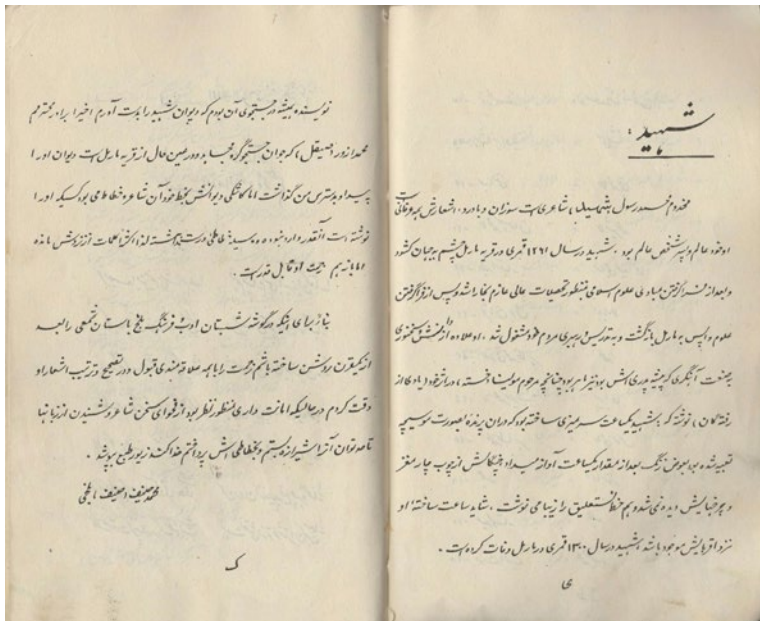 شهید:
مخدوم محمد رسول شهید، شاعری است سوزان و بادرد، اشعارش همه عرفانی است
او خود عالم و پسر شخص عالم بود. شهید در سال ۱۲۹۱ قمری در قریه مارمل چشم بجهان کشود
و بعد از فرا گرفتن مبادی علوم اسلامی بمنظور تحصیلات عالی عازم بخارا شد و پس از فرا گرفتن
علوم واپس به مارمل بازگشت و به تدریس و رهبری مردم خود مشغول شد، او علاوه از منش سخنوری
به صنعت آهنگری که پیشه پدری اش بود نیز ماهر بود چنانچه مرحوم مولینا خسته، در اثر خود (یادی از
رفته گان) نوشته که: شهید یک ساعت سر میزی ساخته بود که در ان پرنده بصورت موسیچه
تعبیه شده بود بعوض زنگ بعد از مقدار یک ساعت آواز میداد هیکلش از چوب چارمغز
و چرخهایش دیده نمی شد و هم خط نستعلیق را زیبا می نوشت، شاید ساعت ساختهٔ او
نزد اقربایش موجود باشد، شهید در سال ۱۳۰۰ قمری در مارمل وفات کرده است.
ی
نویسنده همیشه در جستجوی آن بودم که دیوان شهید را بدست آورم اخیرا برادر محترمم
محمد ازور صیقل، که جوان جستجوگر و در عین حال از قریه مارمل است دیوان او را
پیدا و بدسترس من گذاشت اما کاشکی دیوانش بخط خود آن شاعر و خطاط می بود کسیکه او را
نوشته است آنقدر وارد نبوده و سیخطاطی درست نداشته لذا اکثر کلمات از نزدش مانده
اما باز هم زحمت او قابل قدر است.
بناءً برای اینکه در گوشه شبستان ادب و فرهنگ بلخ باستان شمعی را بعد
از یکقرن روشن ساخته باشم زحمت را با همه علاقه مندی قبول و در تصحیح و ترتیب اشعار او
دقت کردم در حالیکه امانت داری منظور نظر بود از فحوای سخن شاعر و شنیدن از زبانها
تا حد توان آنرا شیرازه بستم و بخطاطی اش پرداختم خدا کند زیور طبع بپوشد.
محمد صنیف، حنیف، بلخی
ک